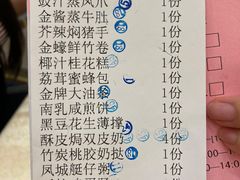 豉汁蒸凤爪 1份
金酱蒸牛肚 1份
芥辣焖猪手 1份
金蠔鲜竹卷 1份
椰汁桂花糕 1份
荔茸蜜蜂包 1份
金牌大油条 1份
南乳咸煎饼 1份
黑豆花生薄撑 1份
酥皮焗双皮奶 4份
竹炭桃胶奶挞 1份
凤城艇仔粥 1份